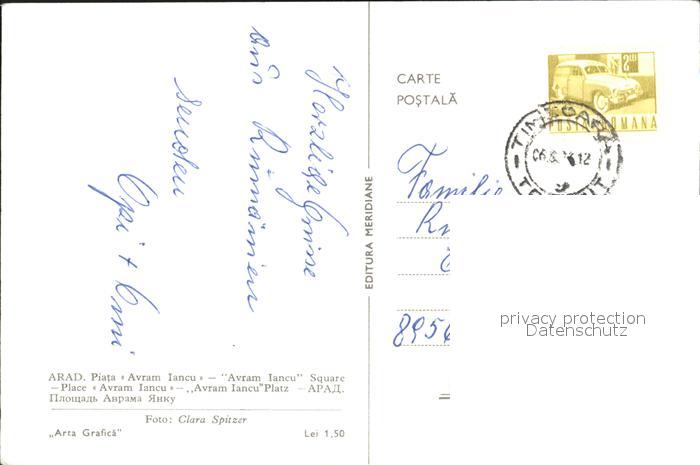 Herzliche Grüsse
aus Rümänien
senden
Opi + Omi
ARAD. Piața «Avram Iancu» — "Avram Iancu" Square
—Place «Avram Iancu» — „Avram Iancu"Platz —АРАД.
Площадь Аврама Янку
Foto: Clara Spitzer
„Arta Grafică"
Lei 1,50
EDITURA MERIDIANE
CARTE
POȘTALĂ
2 LEI
POSTA ROMANA
TIMIȘOARA
06.8. 12
Familie
895
privacy protection
Datenschutz